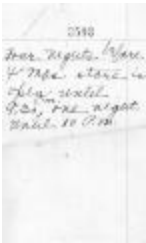 3593
Four nights before
& Mrs. store is
open until
9:30, one night
until 10 P.M.